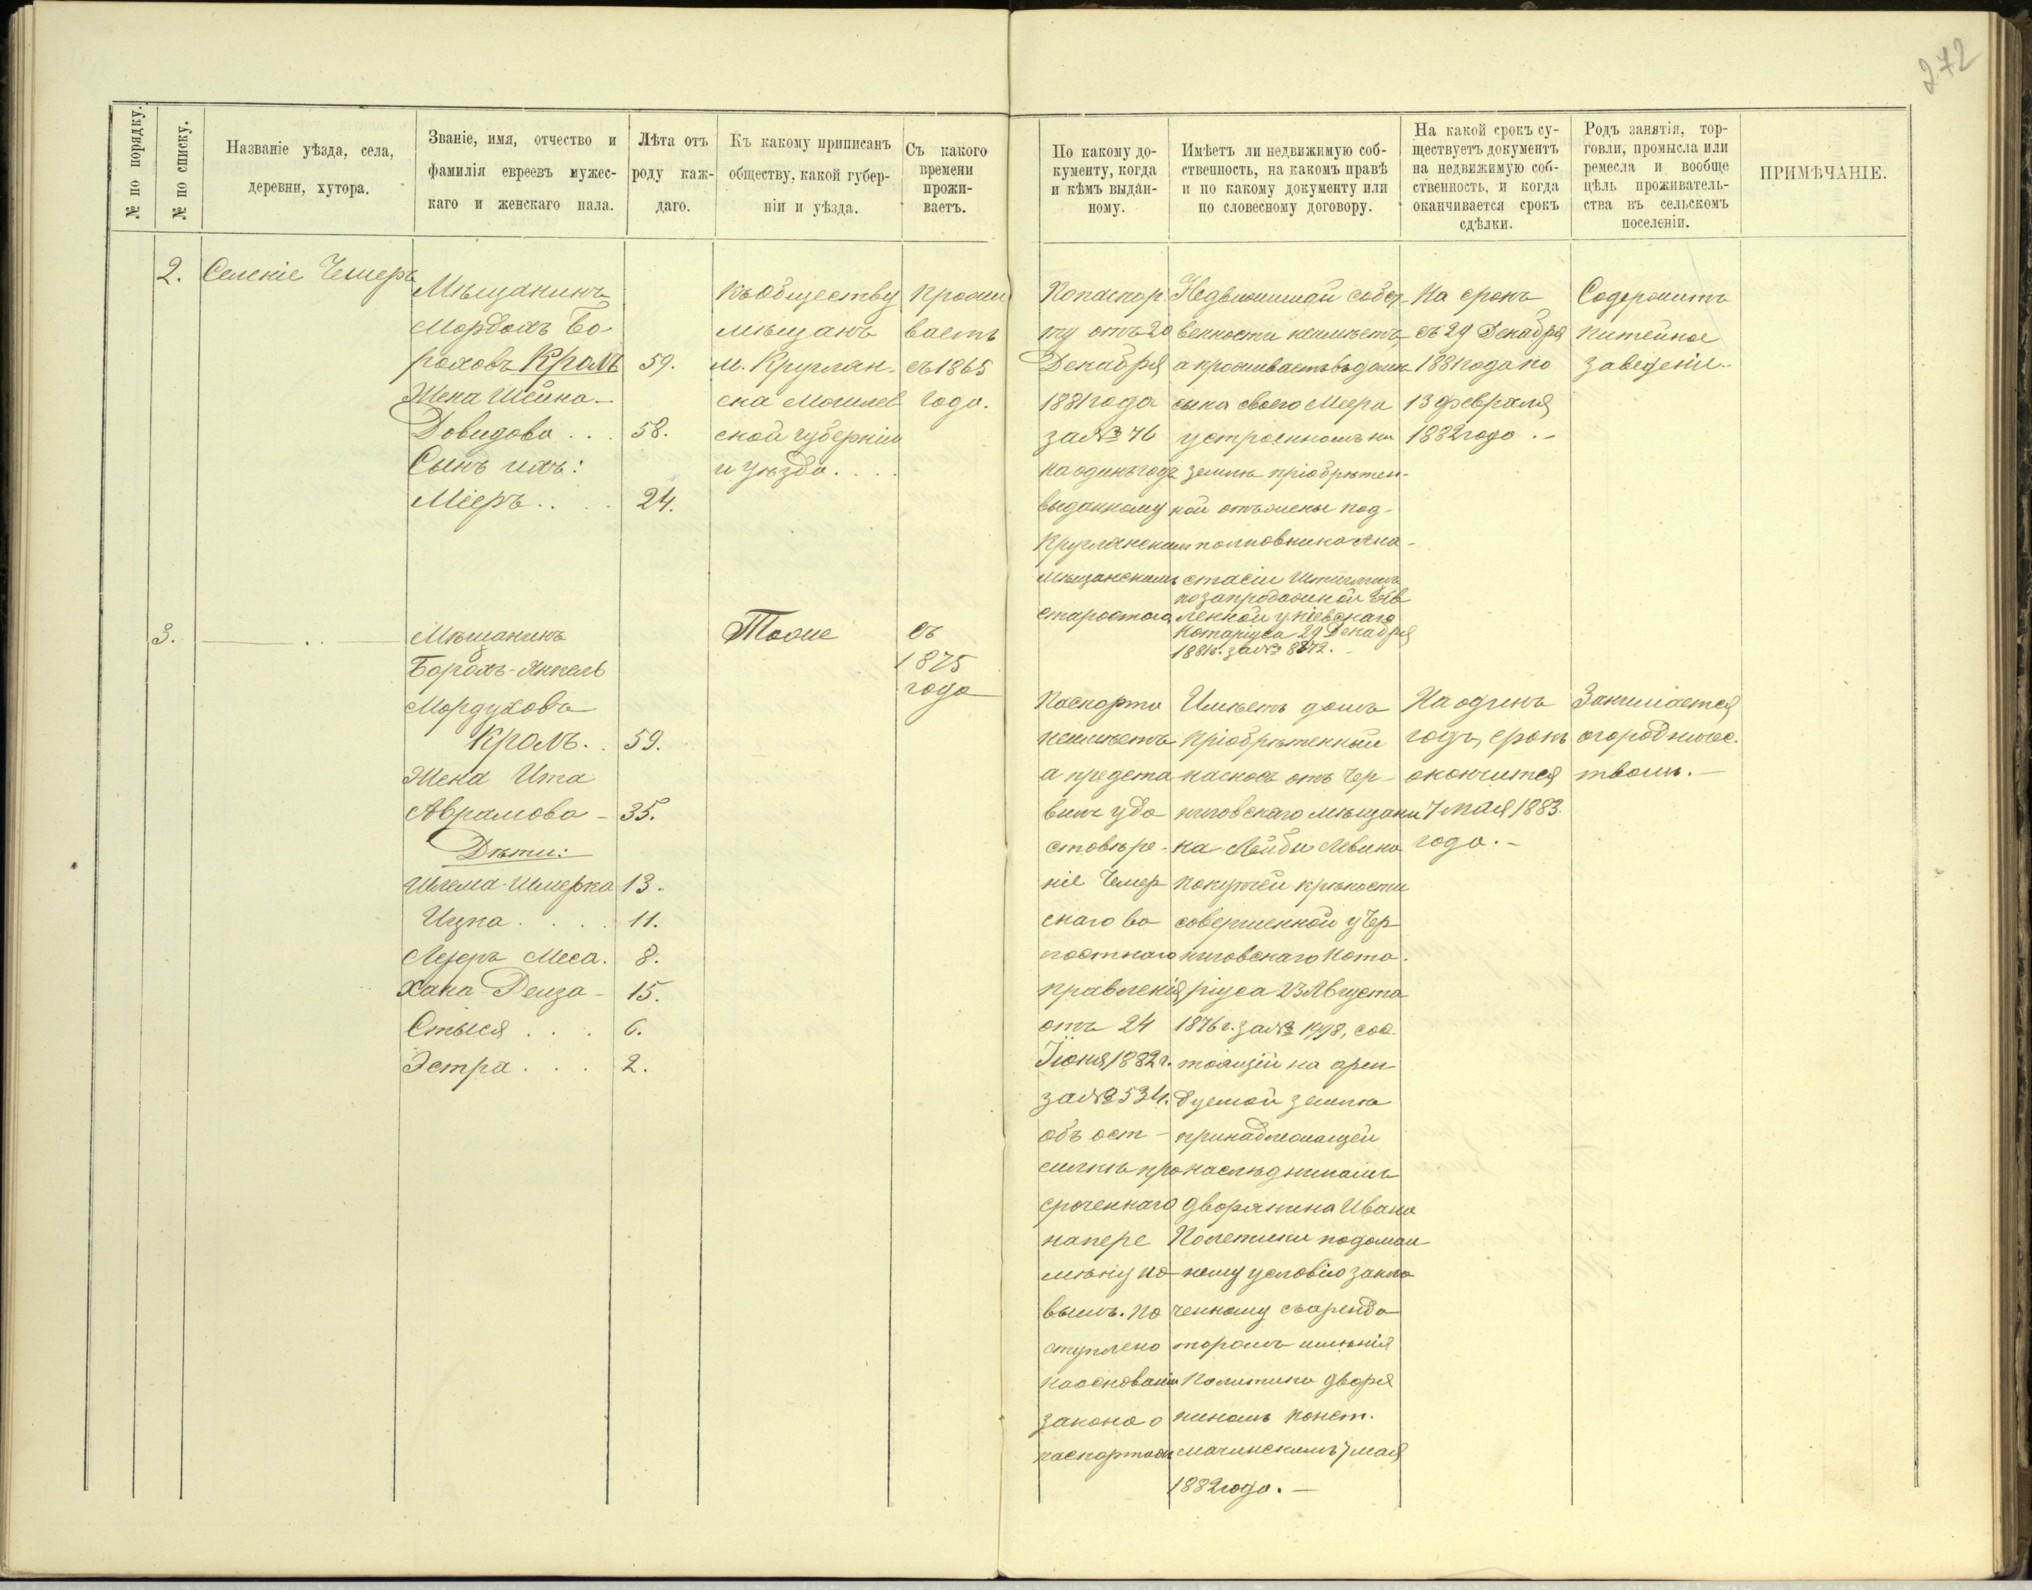 272
№ по порядку.
№ по списку.
Названіе уѣзда, села,
деревни, хутора.
Званіе, имя, отчество и
фамилія евреевъ мужес-
каго и женскаго пала.
Лѣта отъ
роду каж-
даго.
Къ какому приписанъ
обществу, какой губер-
ніи и уѣзда.
Съ какого
времени
прожи-
ваетъ.
По какому до-
кументу, когда
и кѣмъ выдан-
ному.
Имѣетъ ли недвижимую соб-
ственность, на какомъ правѣ
и по какому документу или
по словесному договору.
На какой срокъ су-
ществуетъ документъ
на недвижимую соб-
ственность, и когда
оканчивается срокъ
сдѣлки.
Родъ занятія, тор-
говли, промысла или
ремесла и вообще
цѣль проживатель-
ства въ сельскомъ
поселеніи.
ПРИМѢЧАНІЕ.
2.
Селеніе Чемеръ
Мѣщанинъ
Мордохъ Бо-
роховъ Кролъ 59.
Жена Шейна
Довидова . . . 58.
Сынъ ихъ:
Міеръ . . . . 24.
Къ обществу
мѣщанъ
м. Круглян-
ска Могилев
ской губерніи
и уѣзда. . . .
Прожи
ваетъ
съ 1865
года.
По паспор
ту отъ 20
Декабря
1881 года
за № 76
на одинъ годъ
выданному
Круглянским
мѣщанскимъ
старостою
Недвижимой собст
венности неимѣетъ
а проживаетъ въ домѣ
сына своего Меера
устроенномъ на
землѣ пріобрѣтен-
ной отъ жены под-
полковника Ана-
стасіи
по запродажной
ленной у Кіевскаго
Нотаріуса 29 Декабря
1881 г. за № 8372.
На срокъ
съ 29 Декабря
1881 года по
13 февраля
1882 года . –
Содержитъ
питейное
заведеніе.
3.
Мѣщанинъ
Борохъ-Янкель
Мордуховъ
Кролъ. . 59.
Жена Ита
Аврамова – 35.
Дѣти:
Шлема-Шмерка 13.
Ицка. . . . 11.
Лезеръ Меса. 8.
Хана-Деиза – 15.
Стыся . . . 6.
Эстра . . . 2.
Тоже
съ
1875
года
Паспорта
неимѣетъ
а предста
вилъ удо
стовѣре-
ніе Чемер
скаго Во
лостнаго
правленія
отъ 24
Іюня 1882 г.
за № 534.
объ от-
сылкѣ про
сроченнаго
на пере
мѣну но
вымъ. по
ступлено
на основаніи
закона о
паспортахъ
Имѣетъ домъ
пріобрѣтенный
на сносъ отъ Чер-
ниговскаго мѣщани
на Лейбы Левина
по купчей крѣпости
совершенной у Чер
ниговскаго Нота-
ріуса 23 Августа
1876 г. за № 1998, сос.
тоящій на арен
дуемой землѣ
принадлежащей
наслѣдникамъ
дворянина Ивана
Полетики по домаш
нему условію заклю
ченному съ аренда
торомъ имѣнія
Полетики дворя
ниномъ Конст.
7 мая
1882 года. –
На одинъ
годъ, срокъ
окончится
7 мая 1883
года. –
Занимается
огородничес.
твомъ. –